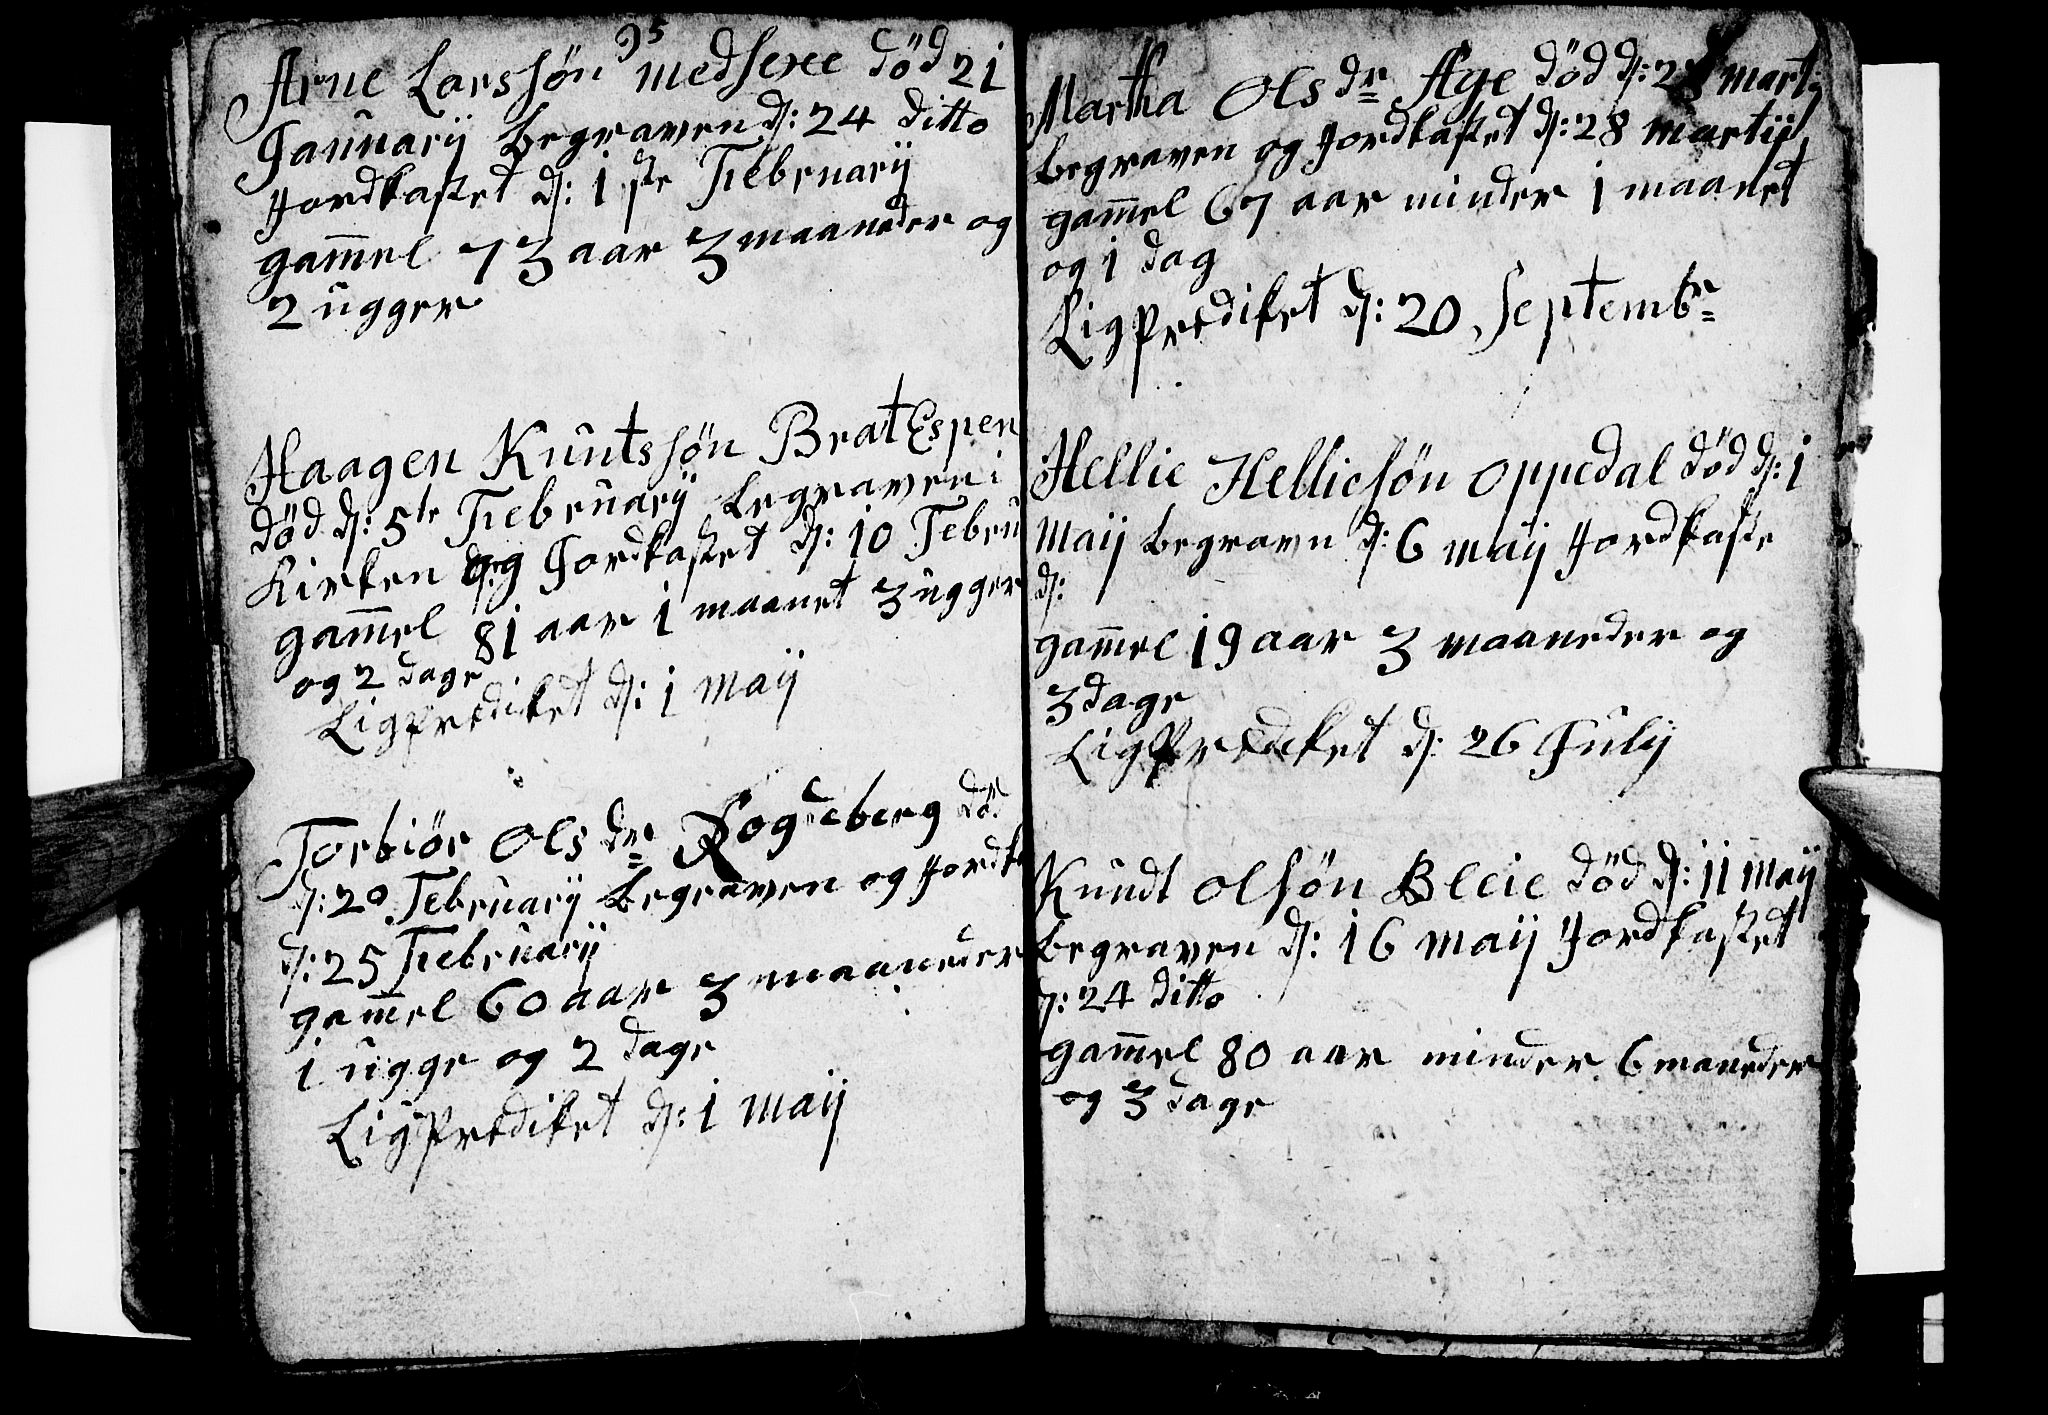 95
Arne Larssøn medsexe død 21
Januarij begraven d: 24 ditto
Jordkastet d: 1ste Februarij
gam̄el 73 aar 3 maaneder og
2 ugger
Haagen Knutssøn BratEspen
død d: 5te Februarij begraven i
Kirken og Jordkastet d: 10 Febru
gam̄el 81 aar 1 maanet 3 ugger
og 2 dage
Ligprediket d: 1 Maij
Torbiør Ols dr Rogdeberg død
d: 20 Februarij begraven og Jordk
d: 25 Februarij
gam̄el 60 aar 3 maaneder
1 ugge og 2 dage
Ligprediket d: 1 Maij
Martha Ols dr Age død d: martij
begraven og Jordkastet d: 28 martij
gam̄el 67 aar minder 1 maanet
og 1 dag
Ligprediket d: 20 Septembr
Hellie Helliesøn Oppedal død d: 1
Maij begravn d: 6 maij Jordkaste
d:
gam̄el 19 aar 3 maaneder og
3 dage
Ligprediket d: 26 Julij
Kundt Olsøn Bleie død d: 11 Maij
begraven d: 16 maij Jordkastet
d: 24 ditto
gam̄el 80 aar minder 6 maneder
og 3 dage